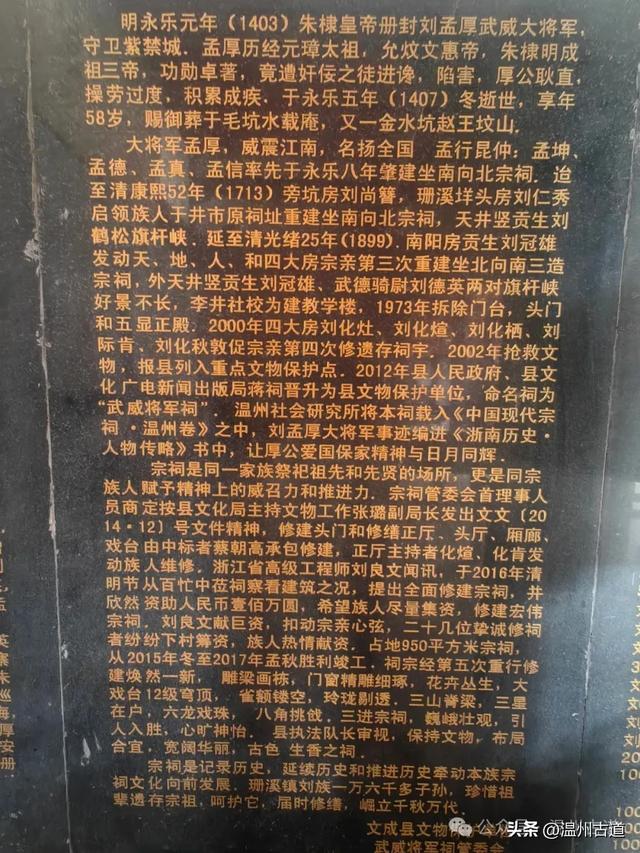 明永乐元年（1403）朱棣皇帝册封刘孟厚武威大将军，
守卫紫禁城．孟厚历经元璋太祖，允炆文惠帝，朱棣明成
祖三帝，功勋卓著，竟遭奸佞之徒进谗，陷害，厚公耿直，
操劳过度，积累成疾．于永乐五年（1407）冬逝世，享年
58岁，赐御葬于毛坑水载庵，又一金水坑赵王坟山．
大将军孟厚，威震江南，名扬全国　孟行昆仲：孟坤、
孟德、孟真、孟信率先于永乐八年肇建坐南向北宗祠．迨
至清康熙52年（1713）旁坑房刘尚簪，珊溪垟头房刘仁秀
启领族人于井市原祠址重建坐南向北宗祠，天井竖贡生刘
鹤松旗杆峡．延至清光绪25年（1899）．南阳房贡生刘冠雄
发动天、地、人、和四大房宗亲第三次重建坐北向南三造
宗祠，外天井竖贡生刘冠雄、武德骑尉刘德英两对旗杆峡
好景不长，李井社校为建教学楼，1973年拆除门台，头门
和五显正殿．2000年四大房刘化灶、刘化煊、刘化栖、刘
际肯、刘化秋敦促宗亲第四次修遗存祠宇．2002年抢救文
物，报县列入重点文物保护点．2012年县人民政府，县文
化广电新闻出版局蒋祠晋升为县文物保护单位，命名祠为
“武威将军祠”．温州社会研究所将本祠载入《中国现代宗
祠·温州卷》之中，刘孟厚大将军事迹编进《浙南历史·
人物传略》书中，让厚公爱国保家精神与日月同辉．
宗祠是同一家族祭祀祖先和先贤的场所，更是同宗
族人赋予精神上的威召力和推进力．宗祠管委会首理事人
员商定按县文化局主持文物工作张璐副局长发出文文〔20
14·12〕号文件精神，修建头门和修缮正厅、头厅、厢廊、
戏台由中标者蔡朝高承包修建，正厅主持者化煊、化肯发
动族人维修．浙江省高级工程师刘良文闻讯，于2016年清
明节从百忙中莅祠察看建筑之况，提出全面修建宗祠，并
欣然资助人民币壹佰万圆，希望族人尽量集资，修建宏伟
宗祠．刘良文献巨资，扣动宗亲心弦，二十几位挚诚修祠
者纷纷下村筹资，族人热情献资．占地950平方米宗祠，
从2015年冬至2017年孟秋胜利竣工．祠宗经第五次重行修
建焕然一新，雕梁画栋，门窗精雕细琢，花卉丛生，大
戏台12级穹顶，雀额镂空，玲珑剔透．三山脊梁，三星
在户，六龙戏珠，八角挑戗．三进宗祠，巍峨壮观，引
人入胜，心旷神怡．县执法队长审视，保持文物，布局
合宜，宽阔华丽，古色 生香之祠．
宗祠是记录历史，延续历史和推进历史牵动本族宗
祠文化向前发展．珊溪镇刘族一万六千多子孙，珍惜祖
辈遗存宗祖，呵护它，届时修缮，崛立千秋万代．
文成县文物
武威将军祠管委会
头条 @温州古道